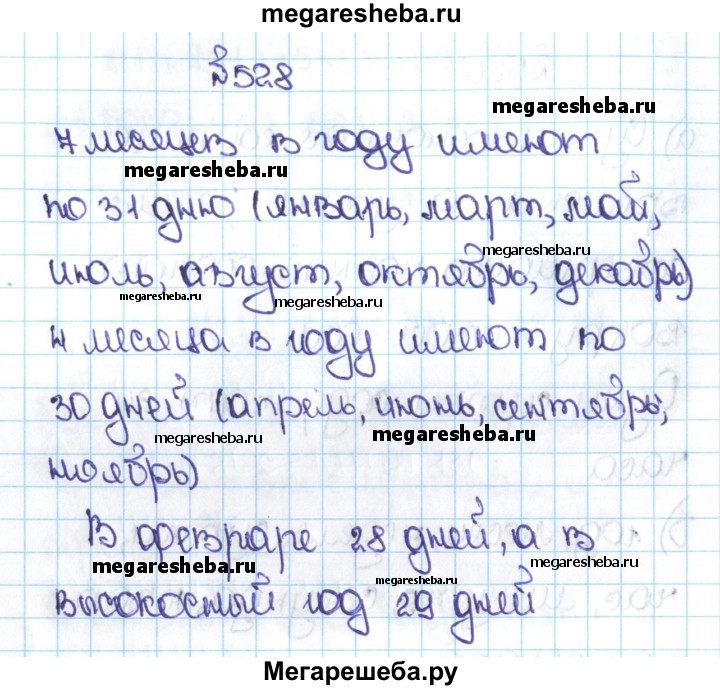 megaresheba.ru
№528
megaresheba.ru
7 месяцев в году имеют
megaresheba.ru
по 31 дню (январь, март, май,
megaresheba.ru
июль, август, октябрь, декабрь)
megaresheba.ru
megaresheba.ru
4 месяца в году имеют по
30 дней (апрель, июнь, сентябрь,
megaresheba.ru
megaresheba.ru
ноябрь)
В феврале 28 дней, а в
megaresheba.ru
megaresheba.ru
megaresheba.ru
высокосный год 29 дней
Мегарешеба.ру